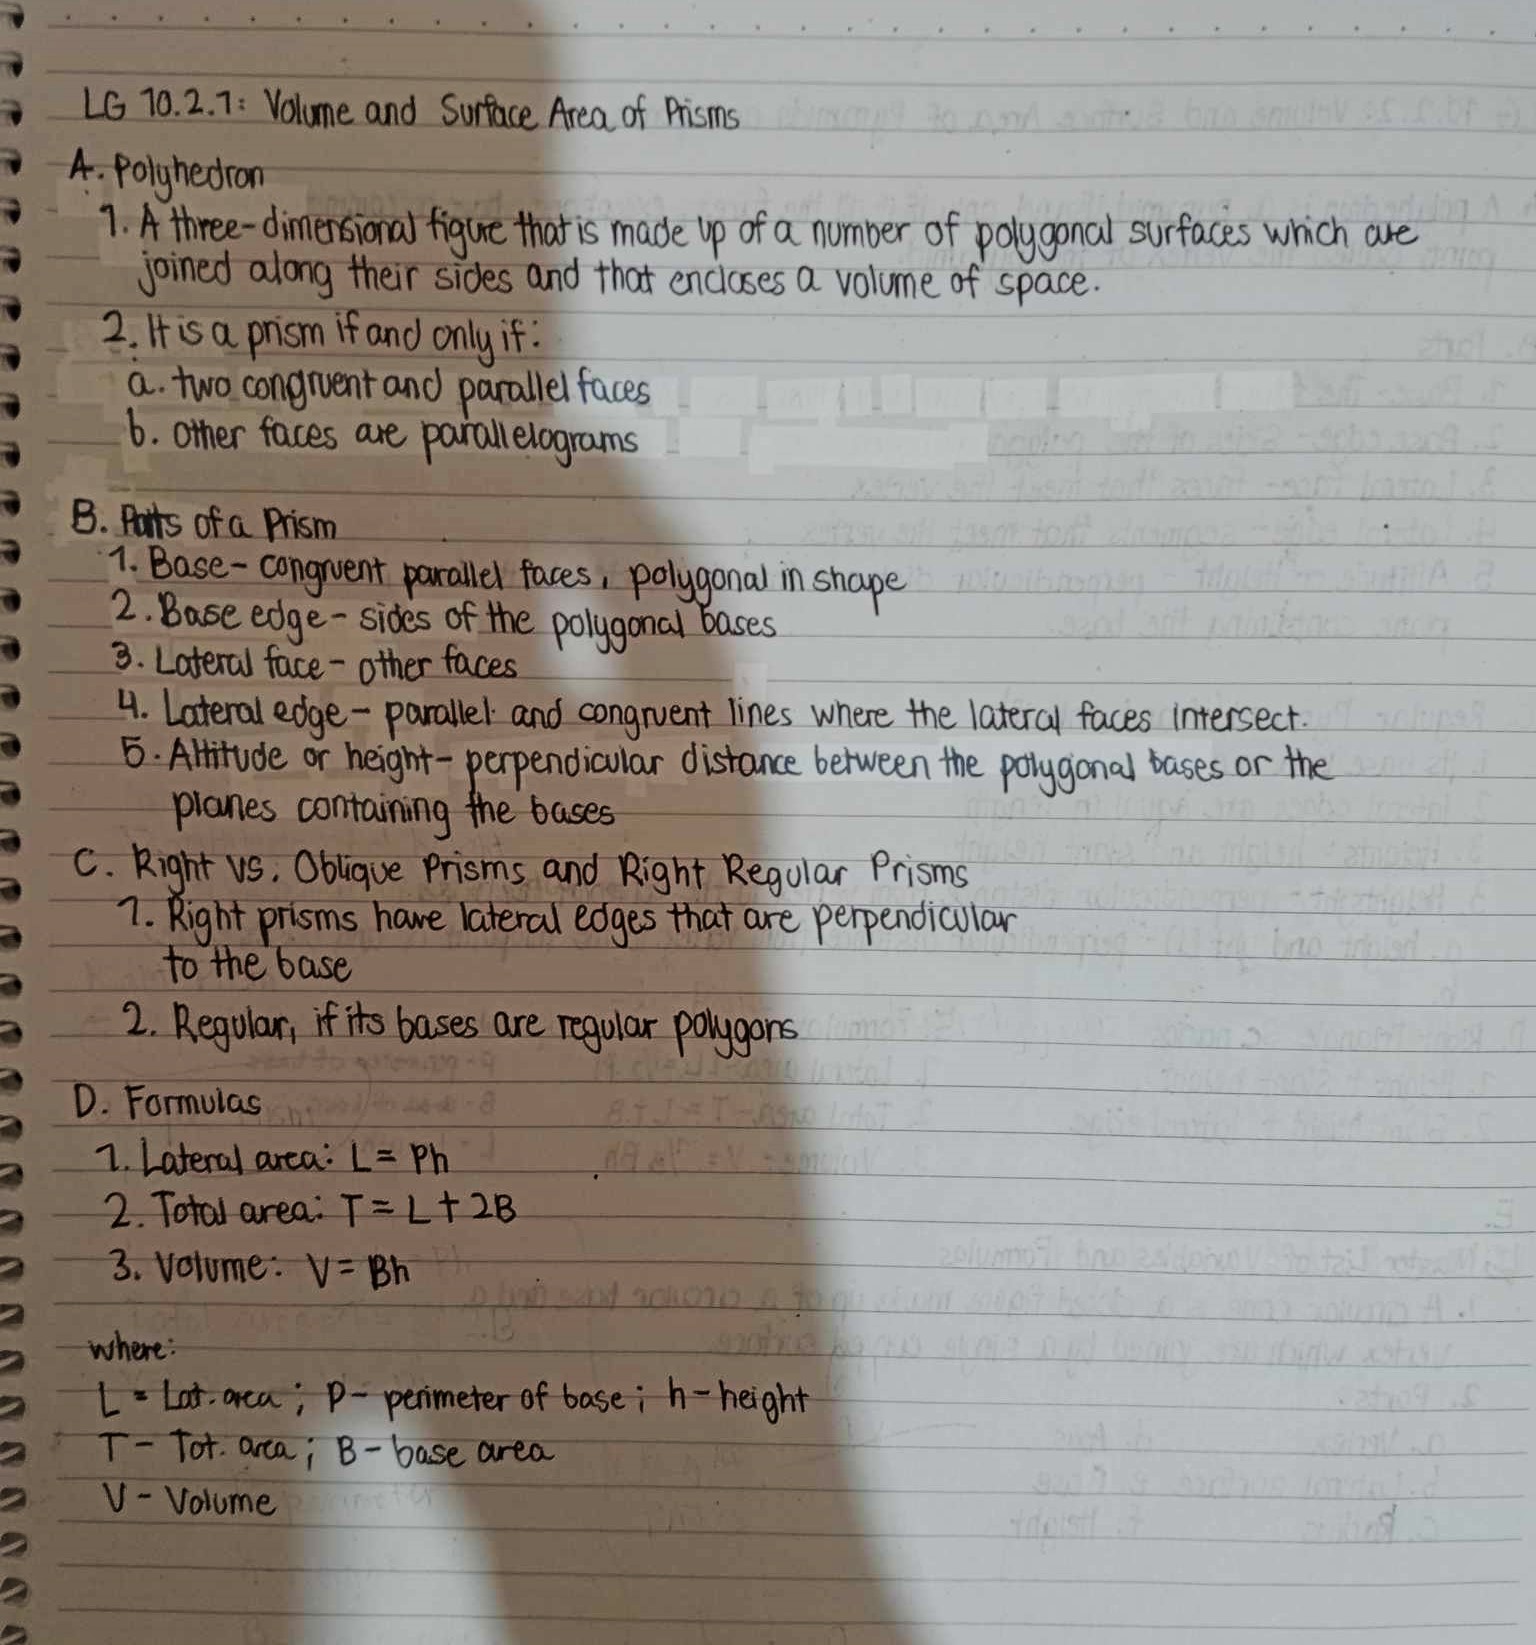 LG 10.2.1: Volume and Surface Area of Prisms
A. Polyhedron
1. A three-dimensional figure that is made up of a number of polygonal surfaces which are
joined along their sides and that encloses a volume of space.
2. It is a prism if and only if:
a. two congruent and parallel faces
b. other faces are parallelograms
B. Parts of a Prism
1. Base - congruent parallel faces, polygonal in shape
2. Base edge - sides of the polygonal bases
3. Lateral face - other faces
4. Lateral edge - parallel and congruent lines where the lateral faces intersect.
5. Altitude or height - perpendicular distance between the polygonal bases or the
planes containing the bases
C. Right vs. Oblique Prisms and Right Regular Prisms
1. Right prisms have lateral edges that are perpendicular
to the base
2. Regular, if its bases are regular polygons
D. Formulas
1. Lateral area: L = Ph
2. Total area: T = L + 2B
3. Volume: V = Bh
where:
L = Lat. area; P - perimeter of base; h - height
T - Tot. area; B - base area
V - Volume